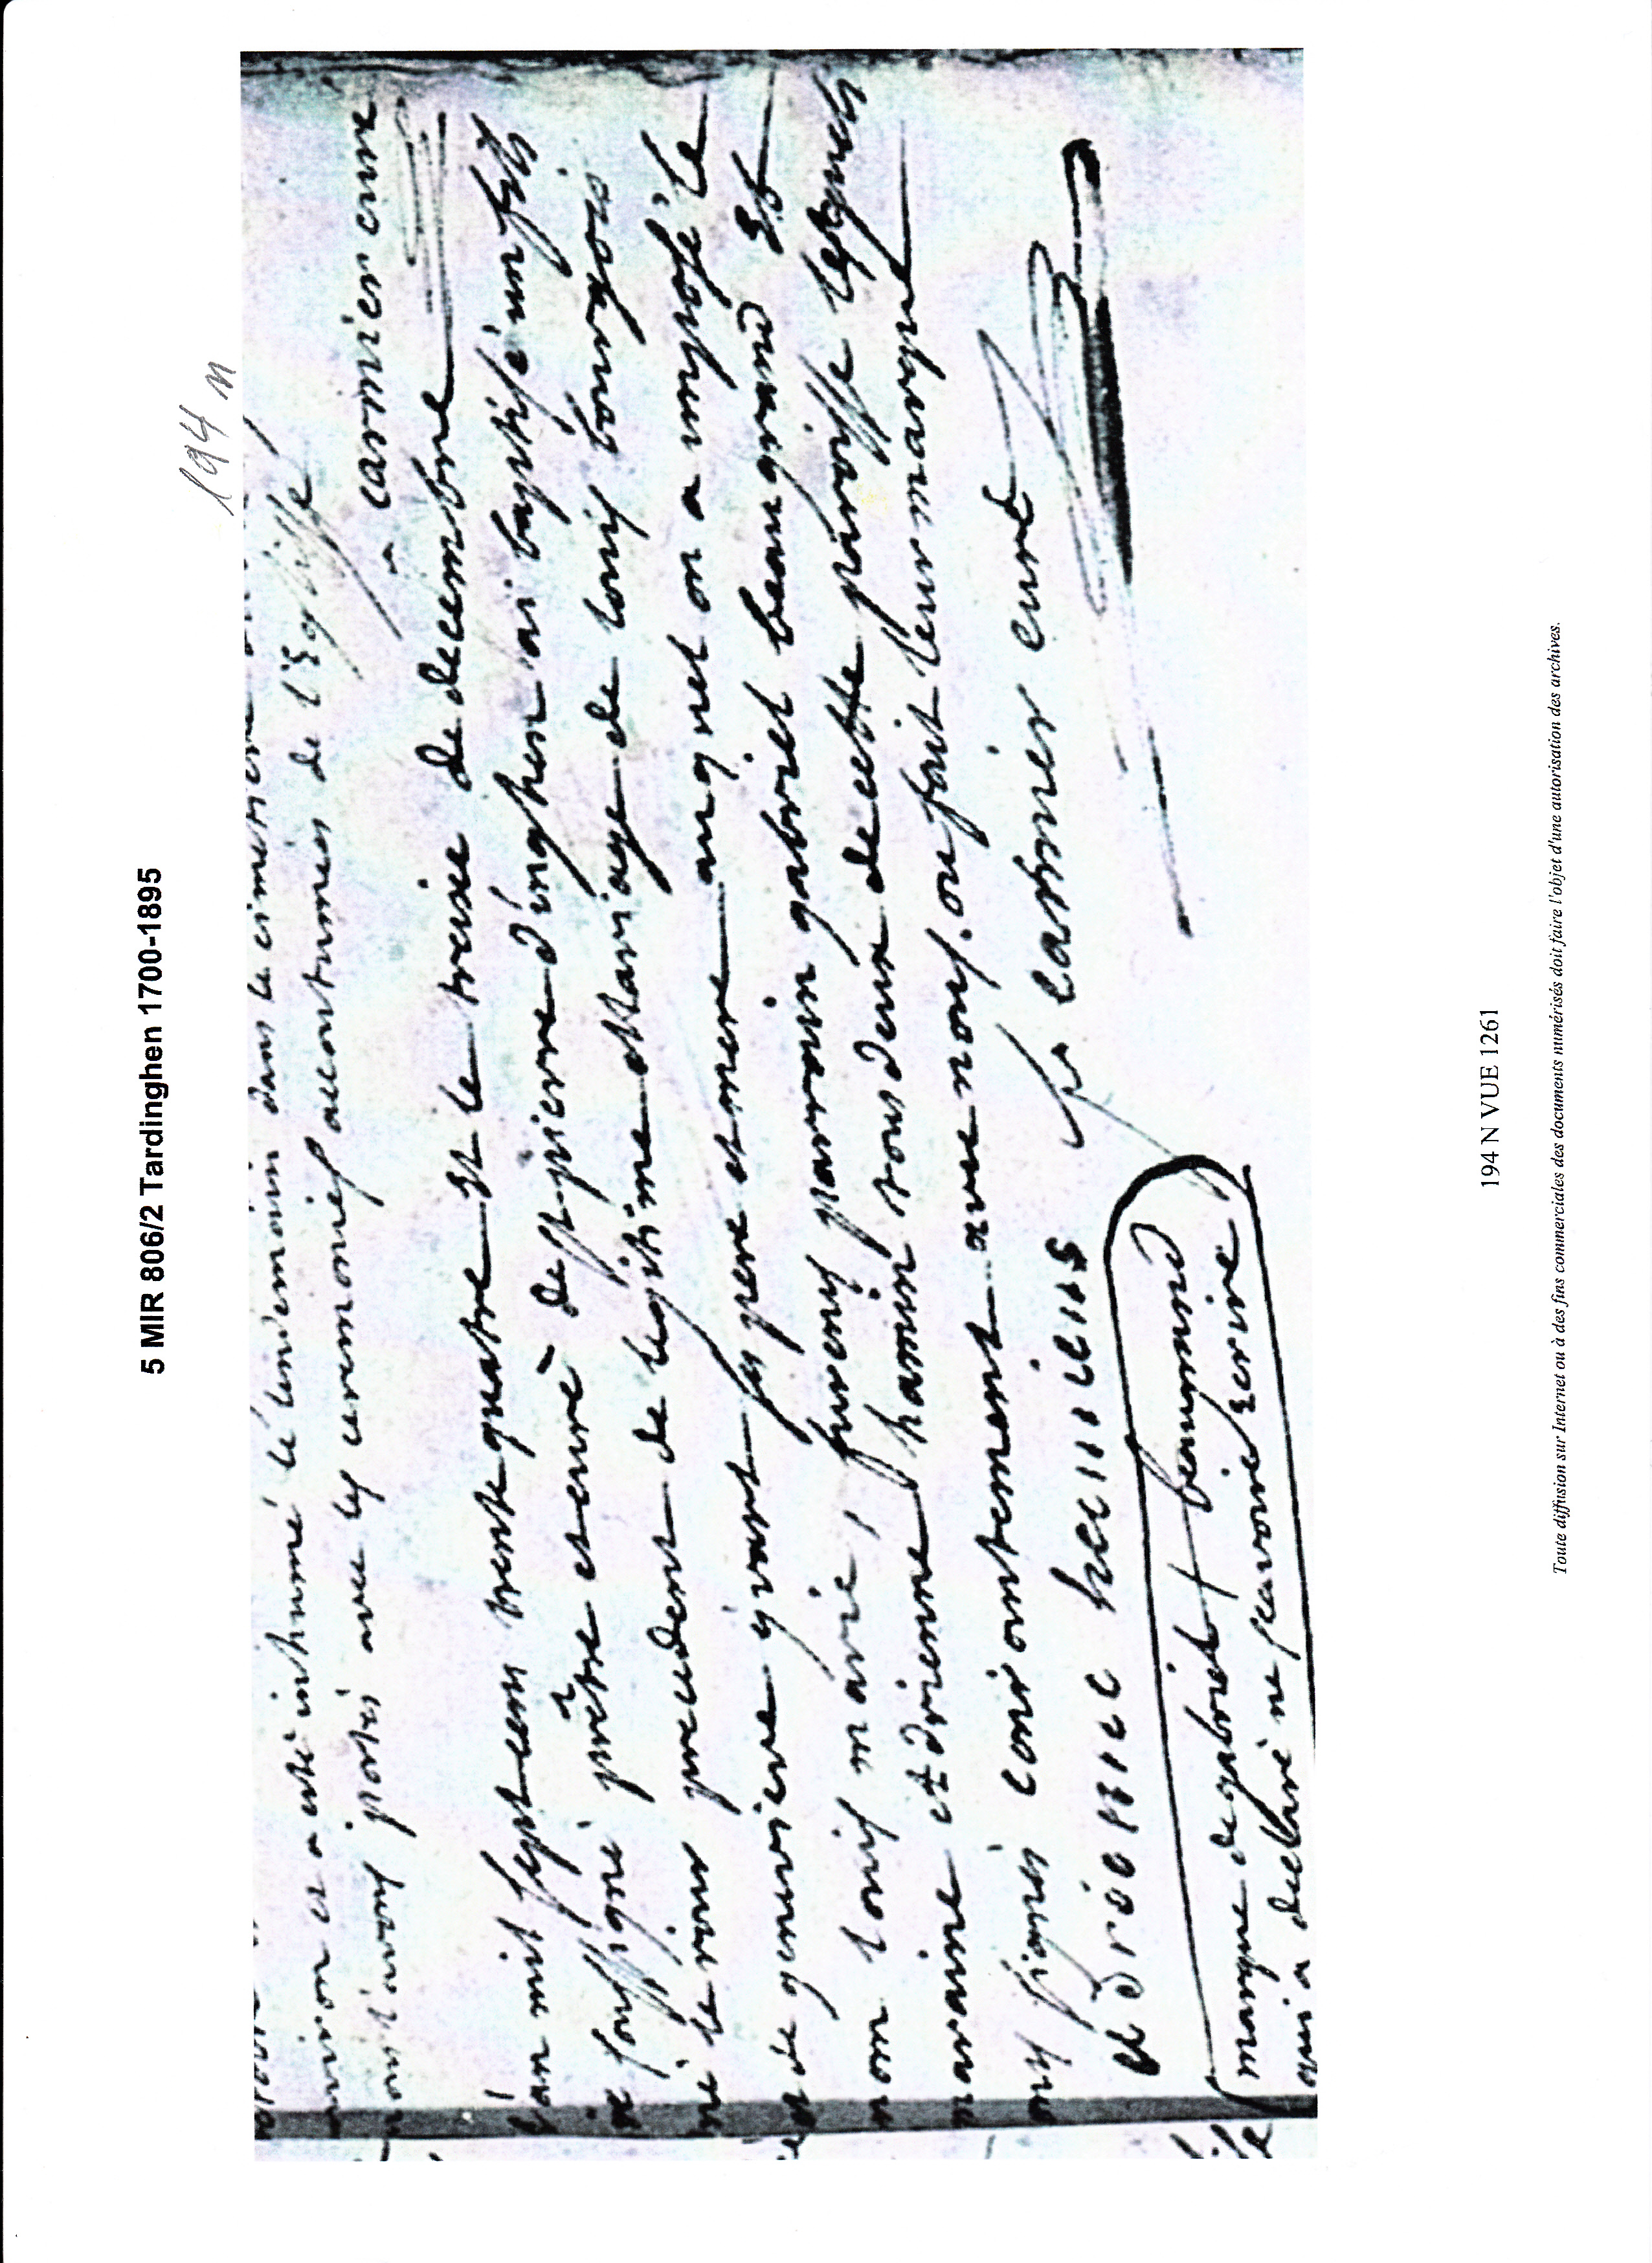 5 MIR 806/2 Tardinghen 1700-1895
194 N
on a esté inhumé le lendemain dans le cimetiere
avec les ceremonies accoutumées de l'Eglise
carmier cure
L'an mil sept cens trente quatre et le treize de decembre
je soussigné prêtre et curé de st pierre d'inghen ai baptisé un fils
né le jour precedent de legitime mariage de louis bourgois
et de genevieve yvart ses pere et mere auquel on a imposé le
nom louis marie, furent parrain gabriel beaugrand et
maraine et drienne hamin tous deux de cette paroisse lesquels
ont signés conjointement avec nous. ou fait leur marque
f. L carmier curé
adrienne hennuiens
marque de gabriel + beaugrand
qui a declaré ne sçavoir Ecrire
194 N VUE 1261
Toute diffusion sur Internet ou à des fins commerciales des documents numérisés doit faire l'objet d'une autorisation des archives.